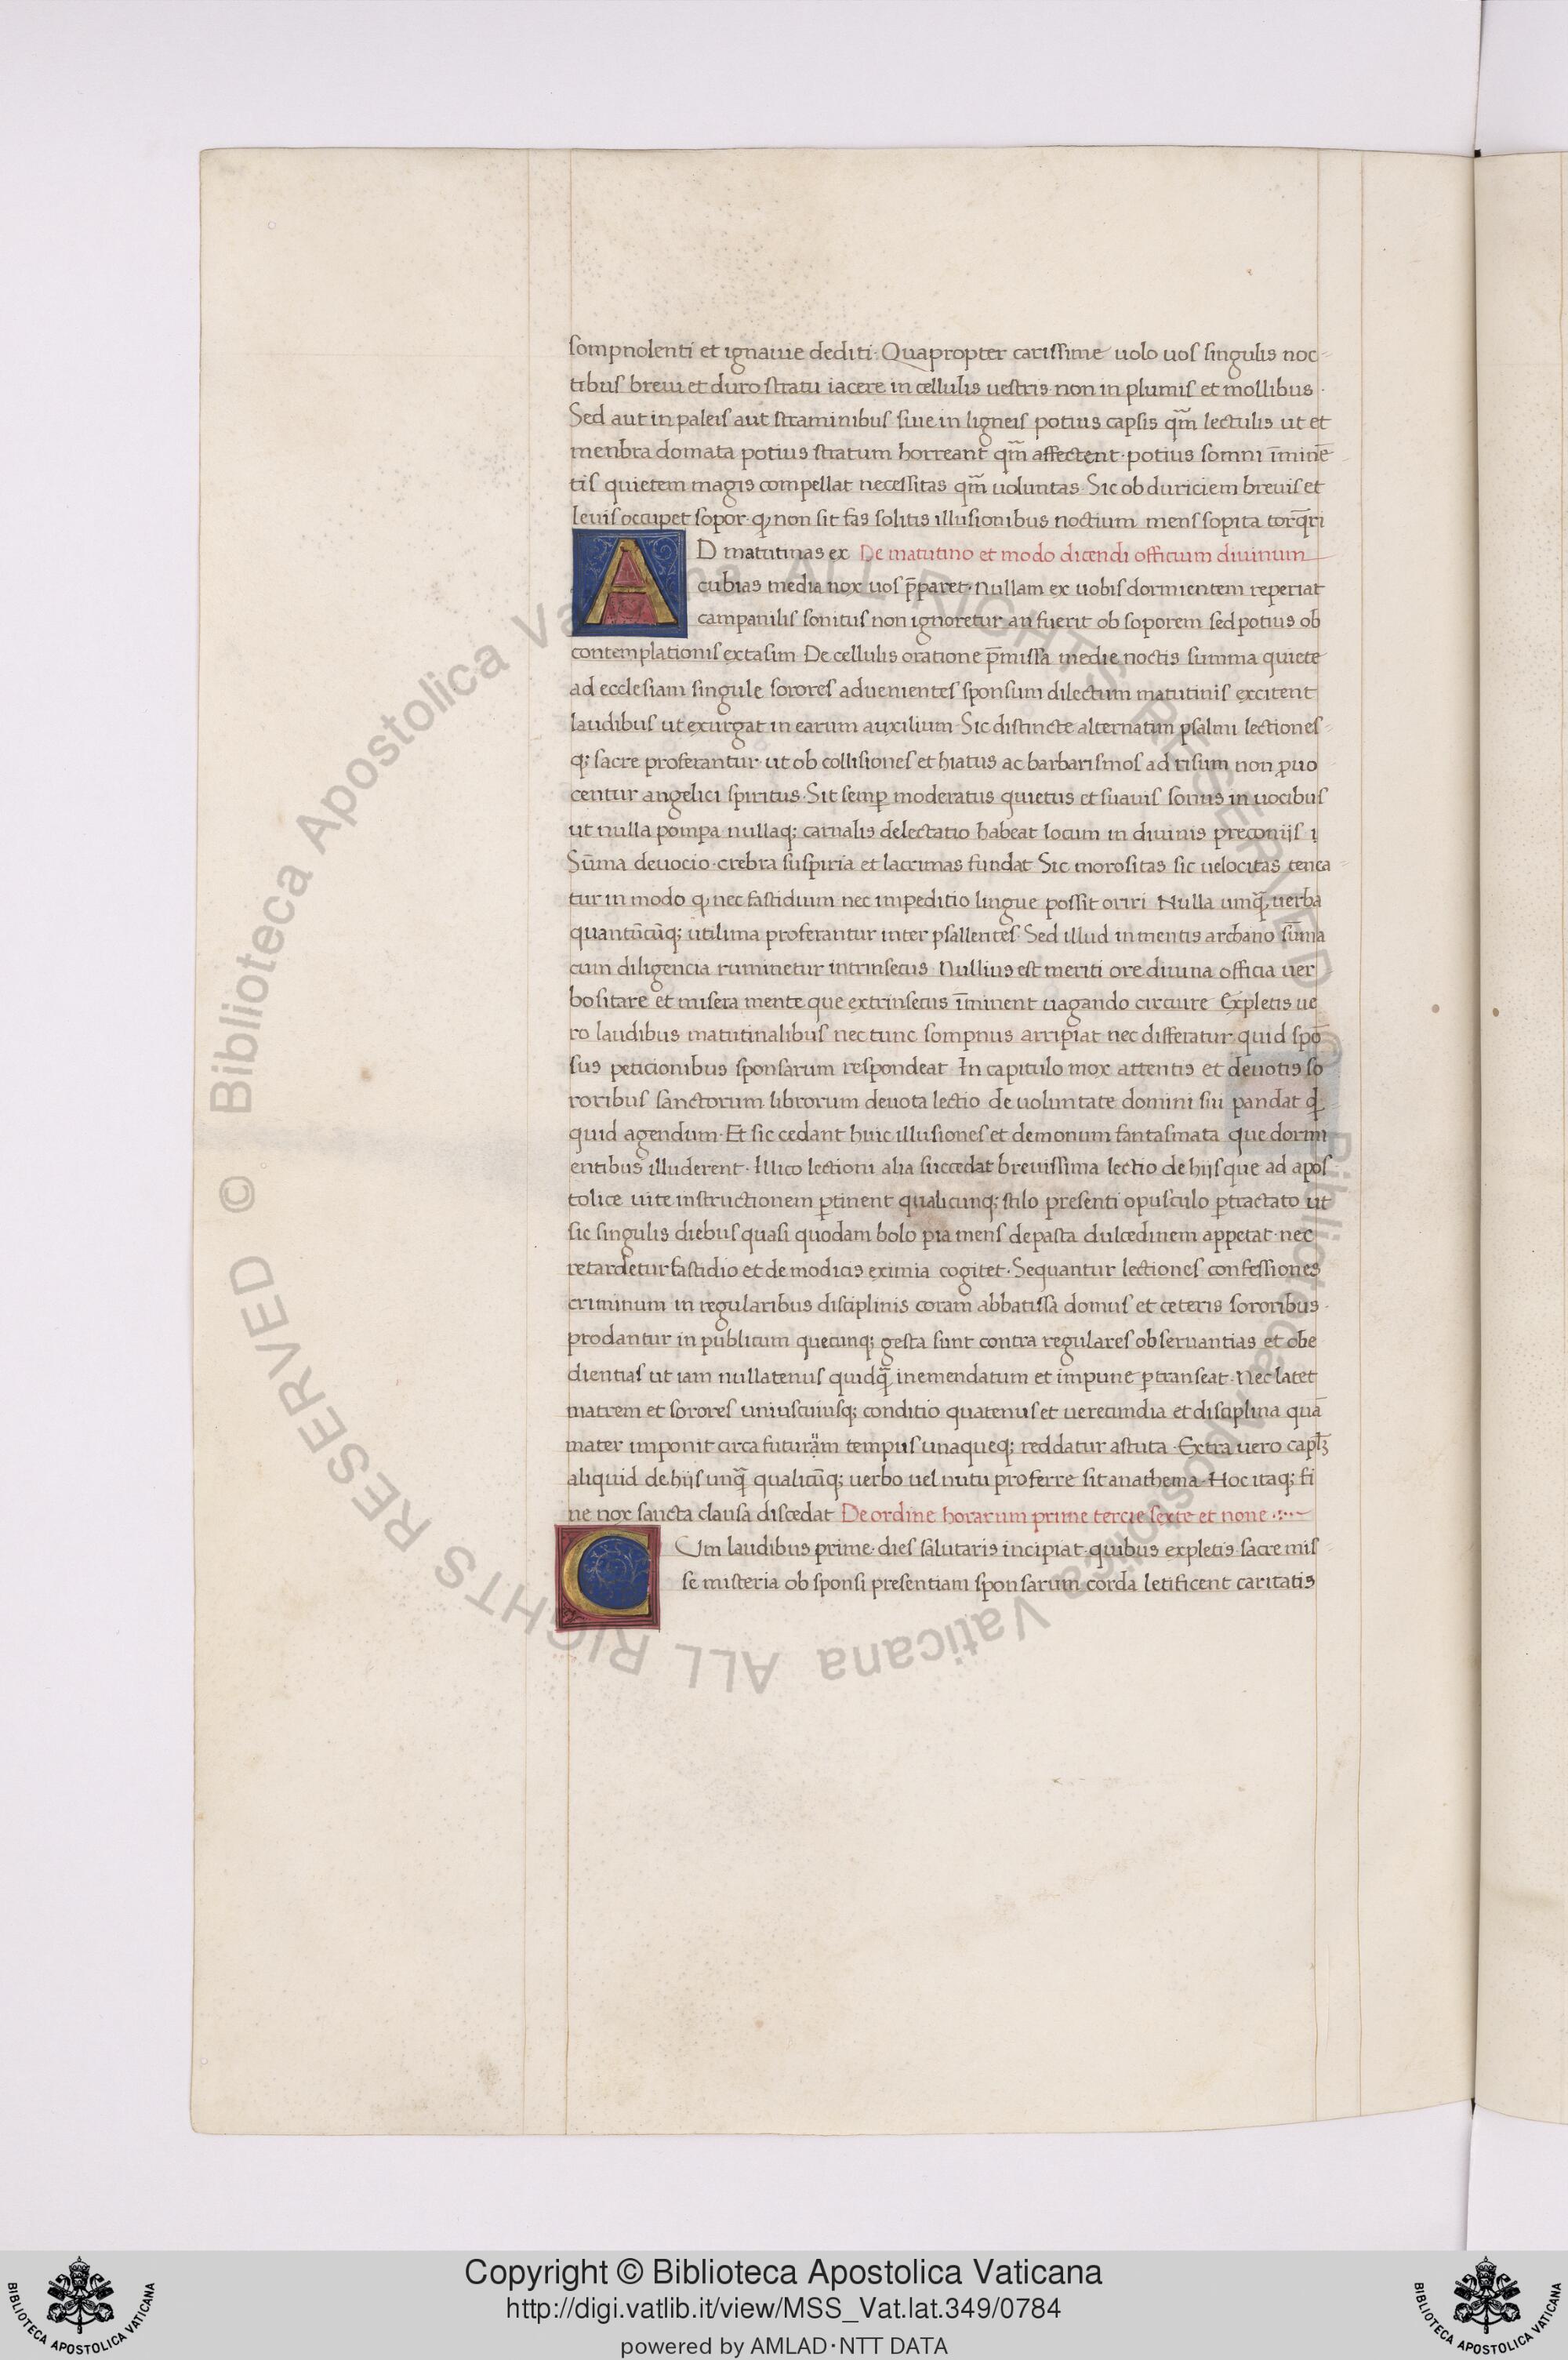 sompnolenti et ignauie dediti· Quapropter carissime uolo uos singulis noc-
tibus breui et duro stratu iacere in cellulis uestris non in plumis et mollibus·
Sed aut in paleis aut straminibus siue in ligneis potius capsis qm̃ lectulis ut et
menbra domata potius stratum horreant qm̃ affectent· potius somni īminē-
tis quietem magis compellat necessitas qm̃ uoluntas· Sic ob duriciem breuis et
leuis occupet sopor· ꝙ non sit fas solitis illusionibus noctium mens sopita torq̄ri
AD matutinas ex De matutino et modo dicendi officium diuinum
cubias media nox uos p̄paret· Nullam ex uobis dormientem reperiat
campanilis sonitus non ignoretur an fuerit ob soporem sed potius ob
contemplationis extasim De cellulis oratione p̄missa medie noctis summa quiete
ad ecclesiam singule sorores aduenientes sponsum dilectum matutinis excitent
laudibus ut exurgat in earum auxilium· Sic distincte alternatim psalmi lectiones-
q; sacre proferantur· ut ob collisiones et hiatus ac barbarismos ad risum non ꝓuo
centur angelici spiritus· Sit semꝑ moderatus quietus et suauis sonus in uocibus
ut nulla pompa nullaq; carnalis delectatio habeat locum in diuinis preconijs
Sūma deuocio· crebra suspiria et lacrimas fundat Sic morositas sic uelocitas tenea-
tur in modo ꝙ nec fastidium nec impeditio lingue possit oriri Nulla umq̃ uerba
quantūcūq; utilima proferantur inter psallentes· Sed illud in mentis archano sūma
cum diligencia ruminetur intrinsecus· Nullius est meriti ore diuina officia uer
bositare et misera mente que extrinsecus īminent uagando circuire Expletis ue
ro laudibus matutinalibus nec tunc sompnus arripiat nec differatur quid spō
sus peticionibus sponsarum respondeat In capitulo mox attentis et deuotis so
roribus sanctorum librorum deuota lectio de uoluntate domini sui pandat
quid agendum· Et sic cedant huic illusiones et demonum fantasmata que dormi
entibus illuderent· Illico lectioni alia succedat breuissima lectio de hijs que ad apos-
tolice uite instructionem ꝑtinent qualicunq; stilo presenti opusculo ꝑtractato ut
sic singulis diebus quasi quodam bolo pia mens depasta dulcedinem appetat· nec
retardetur fastidio et de modicis eximia cogitet· Sequantur lectiones confessiones
criminum in regularibus disciplinis coram abbatissa domus et ceteris sororibus·
prodantur in publicum quecunq; gesta sunt contra regulares obseruantias et obe
dientias ut iam nullatenus quidq̃ inemendatum et impune ꝑtranseat· Nec latet
matrem et sorores uniuscuiusq; conditio quatenus et uerecundia et disciplina quā
mater imponit circa futuram tempus unaqueq; reddatur astuta· Extra uero
aliquid de hijs unq̃ qualicūq; uerbo uel nutu proferre sit anathema· Hoc itaq; fi
ne nox sancta clausa discedat De ordine horarum prime tercie sexte et none
CUm laudibus prime· dies salutaris incipiat· quibus expletis sacre mis-
se misteria ob sponsi presentiam sponsarum corda letificent caritatis
© Biblioteca Apostolica Vaticana ALL RIGHTS RESERVED © Biblioteca Apostolica Vaticana ALL RIGHTS RESERVED
BIBLIOTECA APOSTOLICA VATICANA
Copyright © Biblioteca Apostolica Vaticana
http://digi.vatlib.it/view/MSS_Vat.lat.349/0784
powered by AMLAD·NTT DATA
BIBLIOTECA APOSTOLICA VATICANA